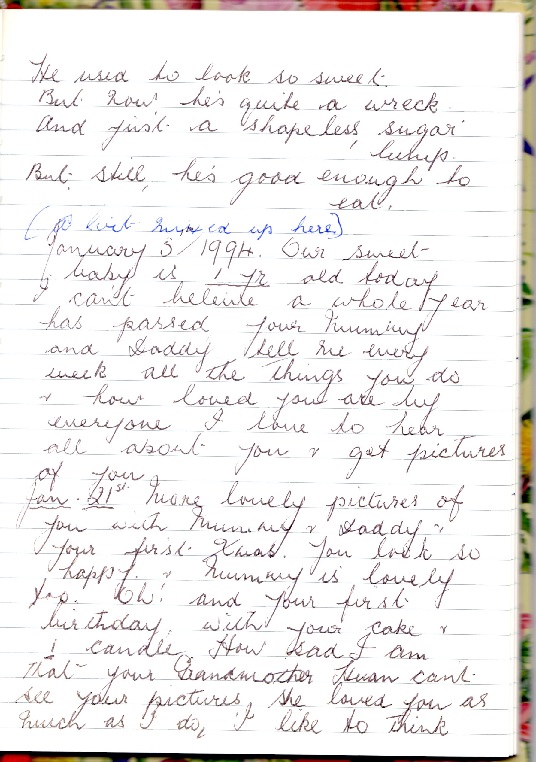 He used to look so sweet.
But now he's quite a wreck.
And just a shapeless sugar
lump.
But still, he's good enough to
eat.
(A bit mixed up here)
January 3/1994. Our sweet
baby is 1 yr old today
I can't beleive a whole year
has passed your Mummy
and Daddy tell me every
week all the things you do
& how loved you are by
everyone I love to hear
all about you & get pictures
of you.
Jan. 21st More lovely pictures of
you with Mummy & Daddy &
your first Xmas. You look so
happy. & Mummy is lovely
too. Oh! and your first
birthday, with your cake &
1 candle. How sad I am
that your Grandmother cant
see your pictures, she loved you as
much as I do, I like to think